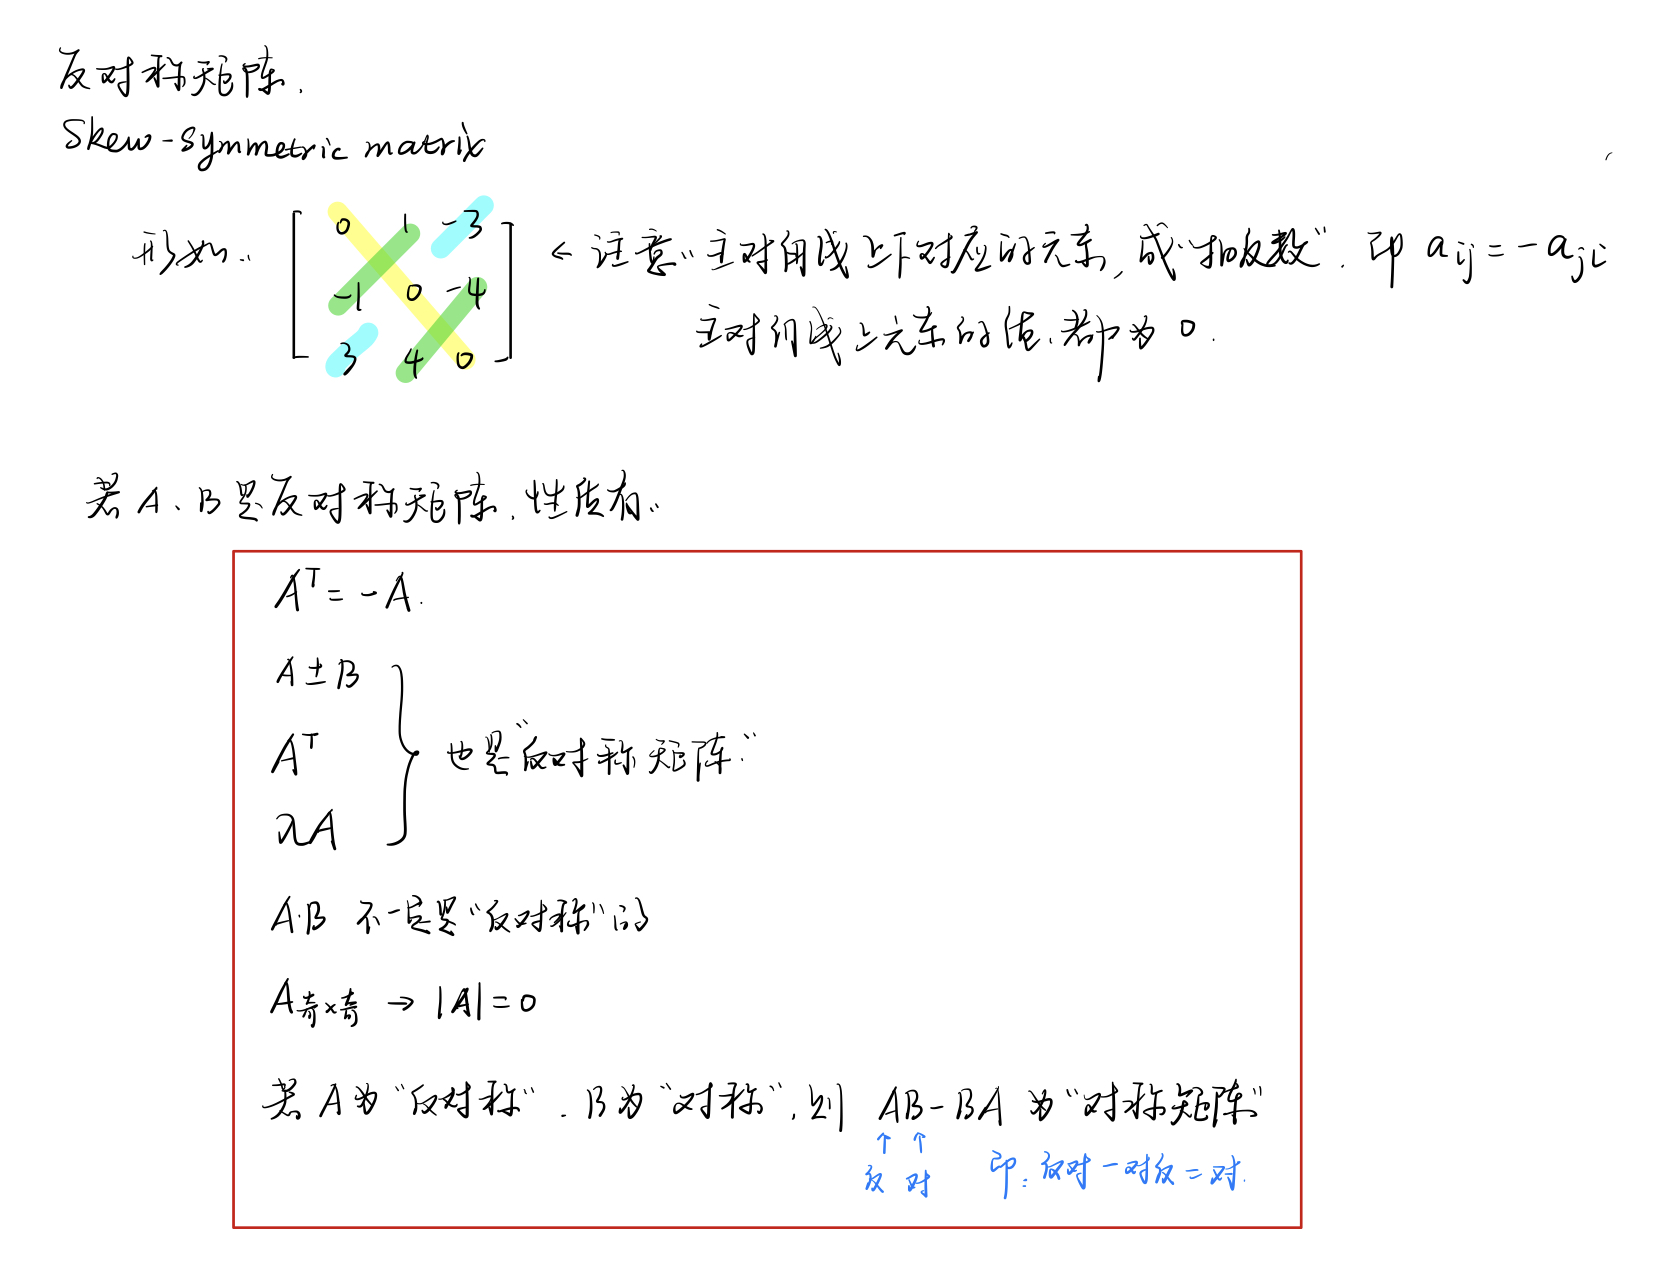 反对称矩阵.
Skew-symmetric matrix
形如: [ 0 1 -3 ← 注意: 主对角线上下对应的元素, 成"相反数". 即 aij = -aji
-1 0 -4
3 4 0 ] 主对角线上元素的值, 都为 0.
若 A、B 是反对称矩阵, 性质有:
Aᵀ = -A.
A±B
Aᵀ } 也是"反对称矩阵"
λA
A·B 不一定是"反对称"的
A奇×奇 → |A| = 0
若 A为"反对称". B为"对称", 则 AB-BA 为"对称矩阵"
↑ ↑
反 对 即: 反对-对反=对.